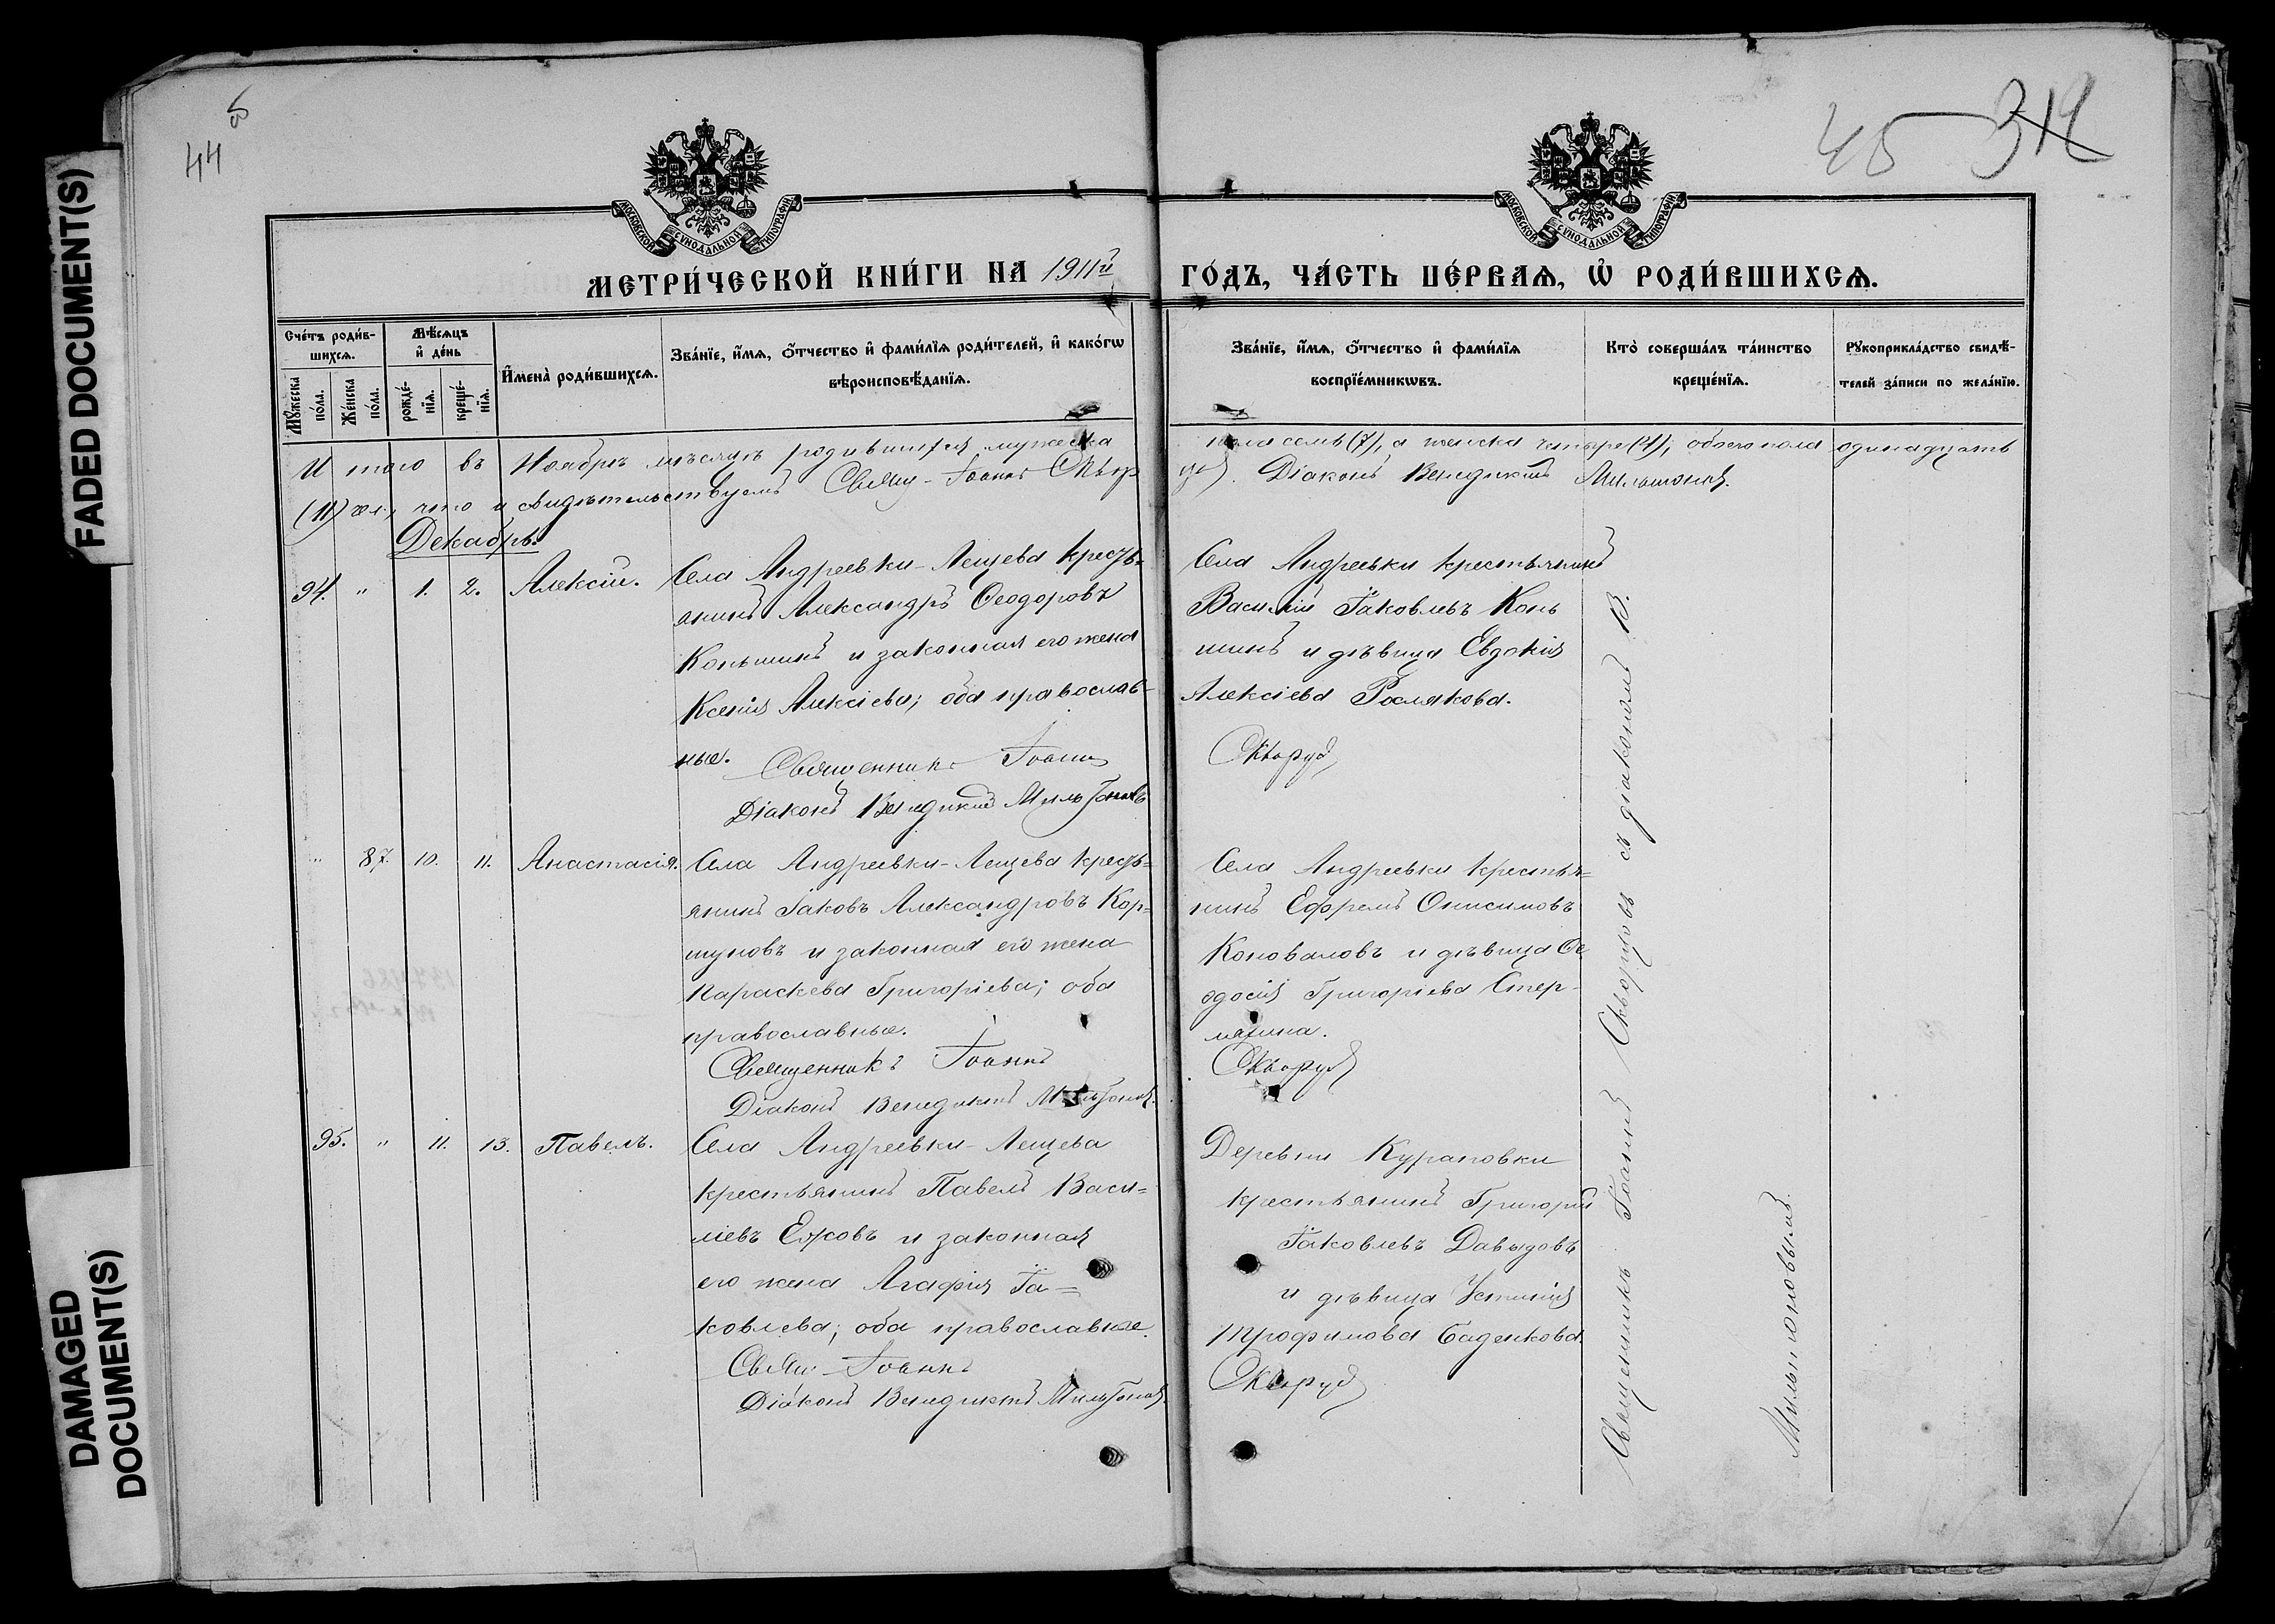 FADED DOCUMENT(S)
DAMAGED
DOCUMENT(S)
44 об
45 312
МОСКОВСКОЙ СѴНОДАЛЬНОЙ ТИПОГРАФІИ
МОСКОВСКОЙ СѴНОДАЛЬНОЙ ТИПОГРАФІИ
МЕТРИ́ЧЕСКОЙ КНИ́ГИ НА 1911й ГО́ДЪ, ЧА́СТЬ ПЕ́РВАѦ, Ѡ҆ РОДИ́ВШИХСѦ.
Сче́тъ роди́в-
шихсѧ.
Мꙋ́жеска
по́ла.
Же́нска
по́ла.
Мѣ́сѧцъ
и҆ де́нь
рожде́-
нїѧ.
креще́-
нїѧ.
И҆мена̀ роди́вшихсѧ.
Зва́нїе, и҆́мѧ, ѻ҆́тчество и҆ фами́лїѧ роди́телей, и҆ како́гѡ
вѣроисповѣ́данїѧ.
Зва́нїе, и҆́мѧ, ѻ҆́тчество и҆ фами́лїѧ
воспрїе́мникѡвъ.
Кто̀ соверша́лъ та́инство
креще́нїѧ.
Рꙋкоприкла́дство свидѣ́-
телей за́писи по жела́нїю.
И того въ Ноябрѣ мѣсяцѣ родившихся мужеска пола семь (7), а женска четыре (4), обоего пола одинадцать
(11) чел., что и свидѣтельствуемъ Свящ. Іоаннъ Сквор цов. Діаконъ Венедиктъ Мильтоновъ.
Декабрь.
94. " 1. 2. Алексій.
Села Андреевки-Лещева кресть-
янинъ Александръ Ѳеодоровъ
Коньшинъ и законная его жена
Ксенія Алексіева; оба православ-
ные.
Священникъ Іоаннъ Скворцов
Діаконъ Венедиктъ Мильтоновъ
Села Андреевки крестьянинъ
Василій Іаковлевъ Конь
шинъ и дѣвица Евдокія
Алексіева Рослякова.
" 87. 10. 11. Анастасія.
Села Андреевки-Лещева кресть=
янинъ Іаковъ Александровъ Кор=
шуновъ и законная его жена
Параскева Григоріева; оба
православные.
Священникъ Іоаннъ Скворцов
Діаконъ Венедиктъ Мильтоновъ.
Села Андреевки крестья=
нинъ Ефремъ Онисимовъ
Коноваловъ и дѣвица Ѳе
одосія Григоріева Стер-
95. " 11. 13. Павелъ.
Села Андреевки-Лещева
крестьянинъ Павелъ Васи=
ліевъ Ежовъ и законная
его жена Агафія Іа=
ковлева; оба православные.
Свящ. Іоаннъ Скворцов
Діаконъ Венедиктъ Мильтоновъ.
Деревни Курановки
крестьянинъ Григорій
Іаковлевъ Давыдовъ
и дѣвица Устинія
Трофимова Баденкова.
Священникъ Іоаннъ Скворцовъ съ діакономъ В.
Мильтоновымъ.